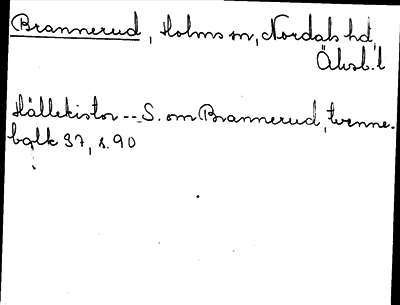 Brannerud, Holms sn, Nordals hd,
Älvsb. l
Hällekistor -- S. om Brannerud, tvenne.
bqlk 97, s. 90